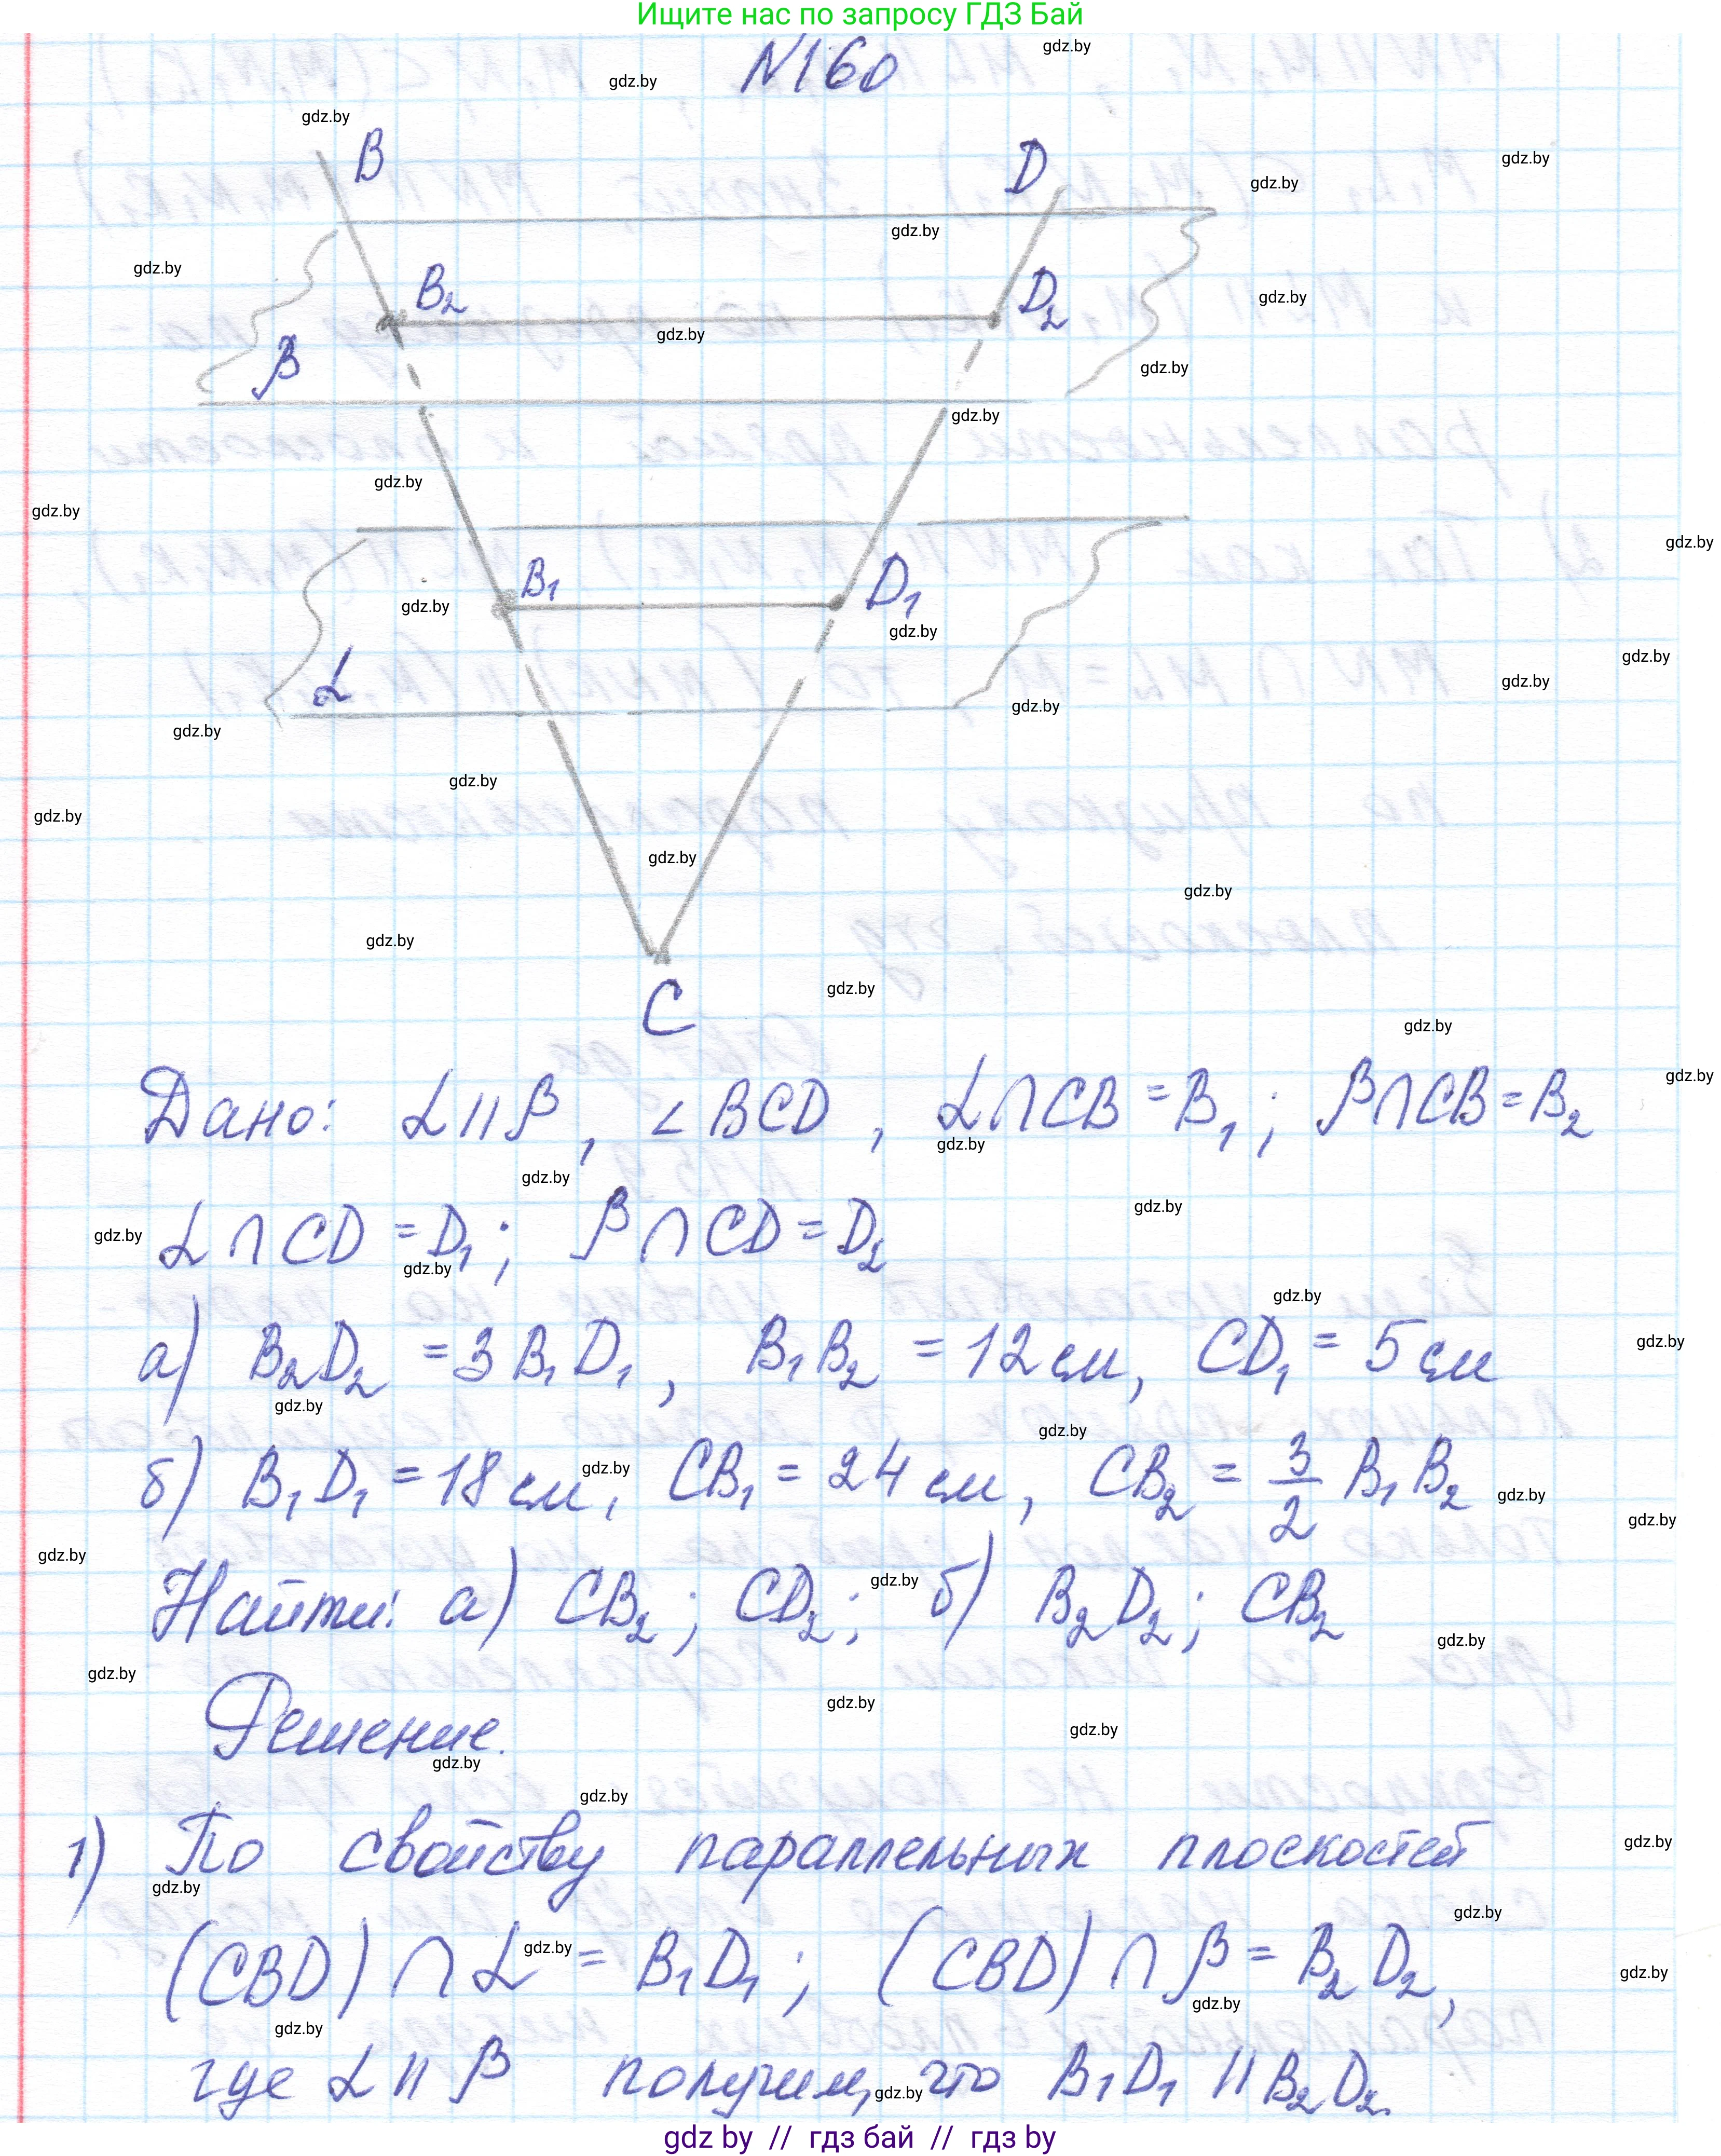 Ищите нас по запросу ГДЗ Бай
N160
B
D
B₂
D₂
β
B₁
D₁
α
C
Дано: α || β, ∠BCD, α∩CB = B₁; β∩CB = B₂
α ∩ CD = D₁; β ∩ CD = D₂
а) B₂D₂ = 3 B₁D₁, B₁B₂ = 12 см, CD₁ = 5 см
б) B₁D₁ = 18 см, CB₁ = 24 см, CB₂ = 3/2 B₁B₂
Найти: а) CB₂; CD₂; б) B₂D₂; CB₂
Решение.
1) По свойству параллельных плоскостей
(CBD) ∩ α = B₁D₁; (CBD) ∩ β = B₂D₂,
где α || β получим, что B₁D₁ || B₂D₂.
gdz by // гдз бай // гдз by